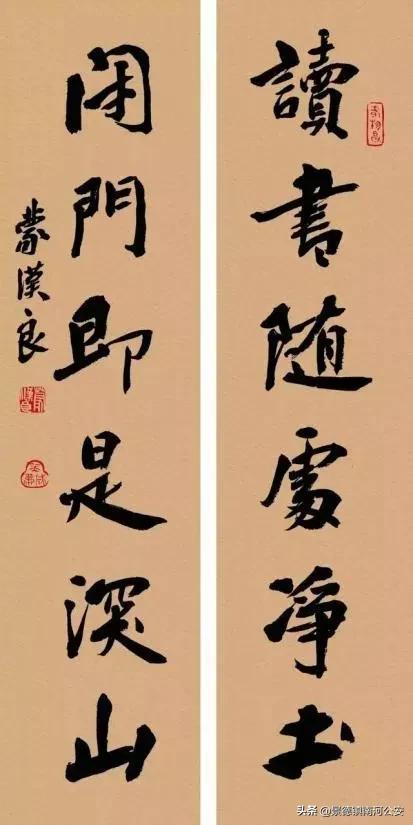 讀書随處淨土
閉門即是深山
蒙漢良
头条 @景德镇南河公安